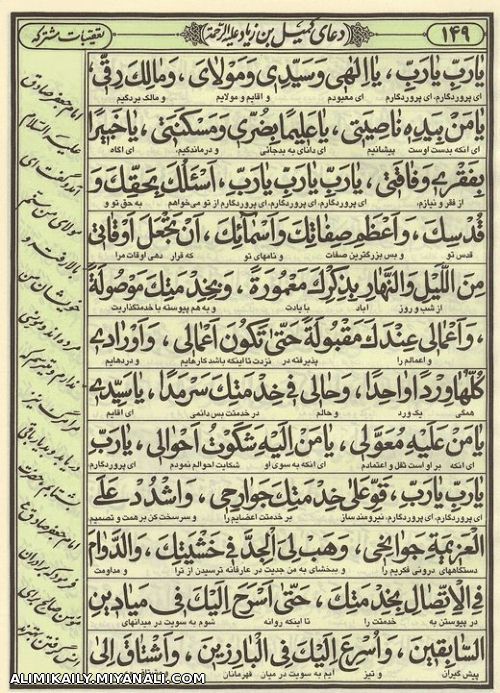 ۱۴۹
دعای کمیل بن زیاد علیه الرحمة
تعقیبات مشترکه
یا رَبِّ یا رَبِّ، یا اِلٰهی وَسَیِّدی وَمَوْلایَ، وَمالِكَ رِقّی،
ای پروردگارم، ای پروردگارم ای معبودم و آقایم و مولایم و مالک بردگیم
یا مَنْ بِیَدِهِ ناصِیَتی، یا عَلیماً بِضُرّی وَمَسْکَنَتی، یا خَبیراً
ای آنکه بدست اوست پیشانیم ای دانای به بدحالی و درماندگیم، ای آگاه
بِفَقْری وَفاقَتی، یا رَبِّ یا رَبِّ یا رَبِّ، اَسْئَلُكَ بِحَقِّكَ وَ
از فقر و نیازم، ای پروردگارم، ای پروردگارم، ای پروردگارم از تو می‌خواهم به حق تو و
قُدْسِكَ، وَاَعْظَمِ صِفاتِكَ وَاَسْمائِكَ، اَنْ تَجْعَلَ اَوْقاتی
قدس تو و بس بزرگترین صفات و نامهای تو که قرار دهی اوقات مرا
مِنَ اللَّیْلِ وَالنَّهارِ بِذِکْرِكَ مَعْمُورَةً، وَبِخِدْمَتِكَ مَوْصُولَةً
از شب و روز آباد با یادت و به هم پیوسته با خدمتگذاریت
، وَاَعْمالی عِنْدَكَ مَقْبُولَةً حَتّیٰ تَکُونَ اَعْمالی، وَاَوْرادی
و اعمالم را پذیرفته در نزدت تا اینکه باشد کارهایم و وردهایم
کُلُّها وِرْداً واحِداً، وَحالی فی خِدْمَتِكَ سَرْمَداً، یا سَیِّدی
همگی یک ورد و حالم در خدمتت بس دائمی ای آقایم
یا مَنْ عَلَیْهِ مُعَوَّلی، یا مَنْ اِلَیْهِ شَکَوْتُ اَحْوالی، یا رَبِّ
ای آنکه بر اوست ثقل و اعتمادم ای آنکه به سوی او شکایت احوالم نمودم ای پروردگارم
یا رَبِّ یا رَبِّ، قَوِّ عَلیٰ خِدْمَتِكَ جَوارِحی، وَاشْدُدْ عَلَی
ای پروردگارم، ای پروردگارم، نیرومند ساز بر خدمتت اعضایم را و سرسخت کن بر همت و تصمیم
الْعَزیمَةِ جَوانِحی، وَهَبْ لِیَ الْجِدَّ فی خَشْیَتِكَ، وَالدَّوامَ
دستگاههای درونی فکریم را و ببخشای به من جدیت در عارفانه ترسیدن از ترا و مداومت
فِی الْاِتِّصالِ بِخِدْمَتِكَ، حَتّیٰ اَسْرَحَ اِلَیْكَ فی مَیادینِ
در پیوستن به خدمتت را تا اینکه روانه شوم به سویت در میدانهای
السّابِقینَ، وَاُسْرِعَ اِلَیْكَ فِی الْبارِزینَ، وَاَشْتاقَ اِلیٰ
پیش گیران و تیز آیم به سویت در میان قهرمانان
امام جعفر صادق
علیه السلام
آمد و گفت ای
مولای من ستم
بالا رفت و
خویشان من
مرده‌اند و مونسی
ندارم و میترسم که
مرا مرگ نیز
دریابد و بیاری
امام جعفر صادق ع
فرمود که برادران
مؤمن صالح برای
ALIMIKAILY.MIYANALI.COM